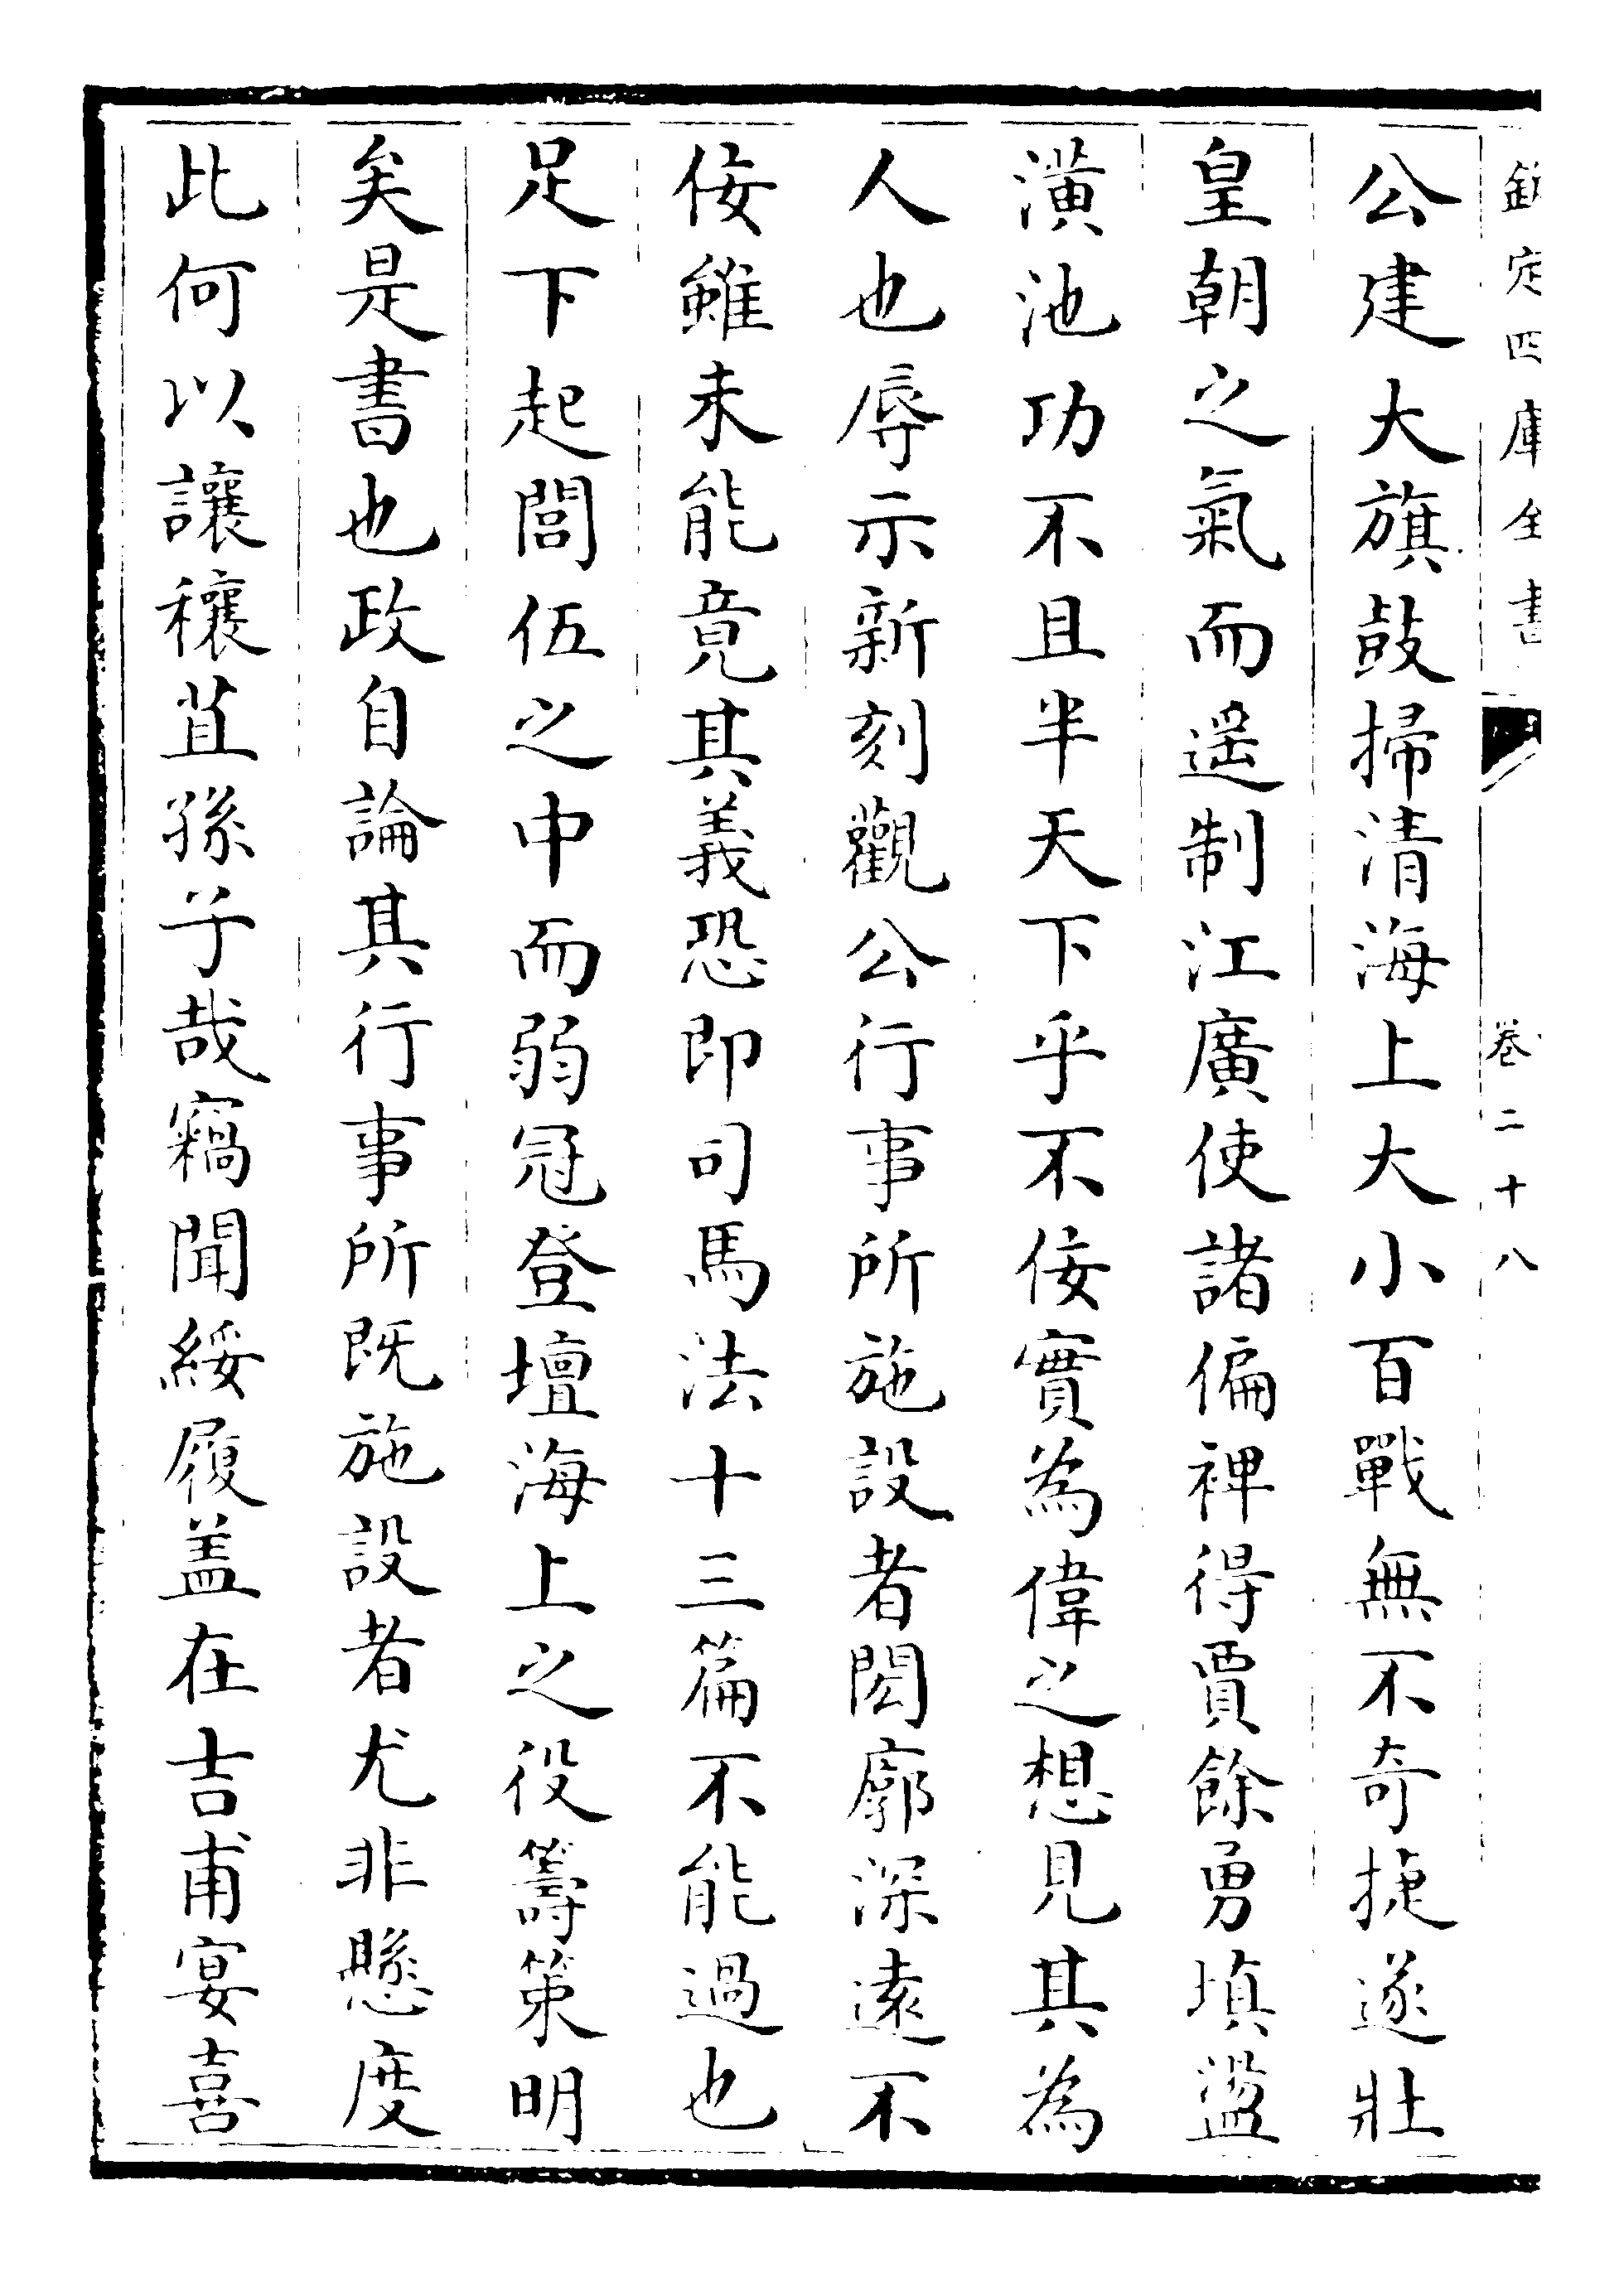 欽定四庫全書
卷二十八
公建大旗鼓掃清海上大小百戰無不奇捷遂壯
皇朝之氣而遥制江廣使諸偏裨得賈餘勇填盪
潢池功不且半天下乎不佞實為偉之想見其為
人也辱示新刻觀公行事所施設者閎廓深遠不
佞雖未能竟其義恐即司馬法十三篇不能過也
足下起閭伍之中而弱冠登壇海上之役籌策明
矣是書也政自論其行事所既施設者尤非懸度
此何以讓穰苴孫子哉竊聞綏履盖在吉甫宴喜